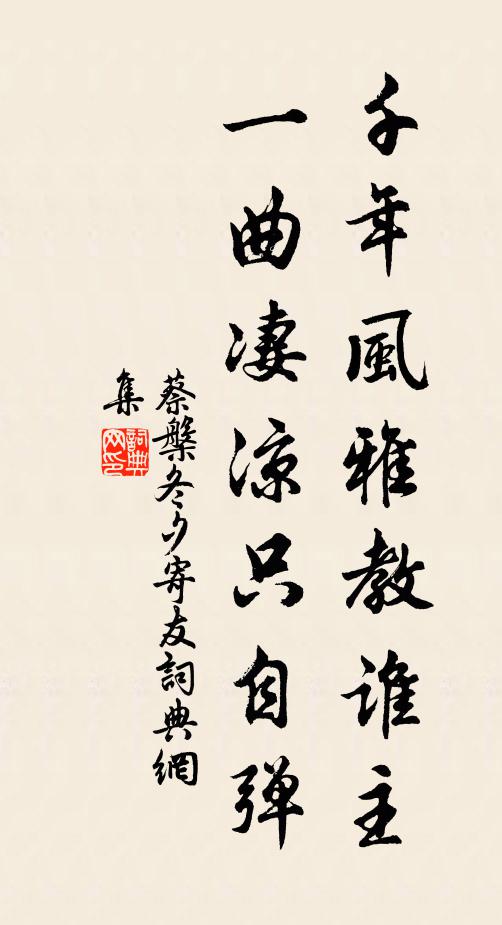 千年風雅教谁主
一曲凄凉只自弹
蔡槃冬夕寄友詞典網
集
詞典
网印